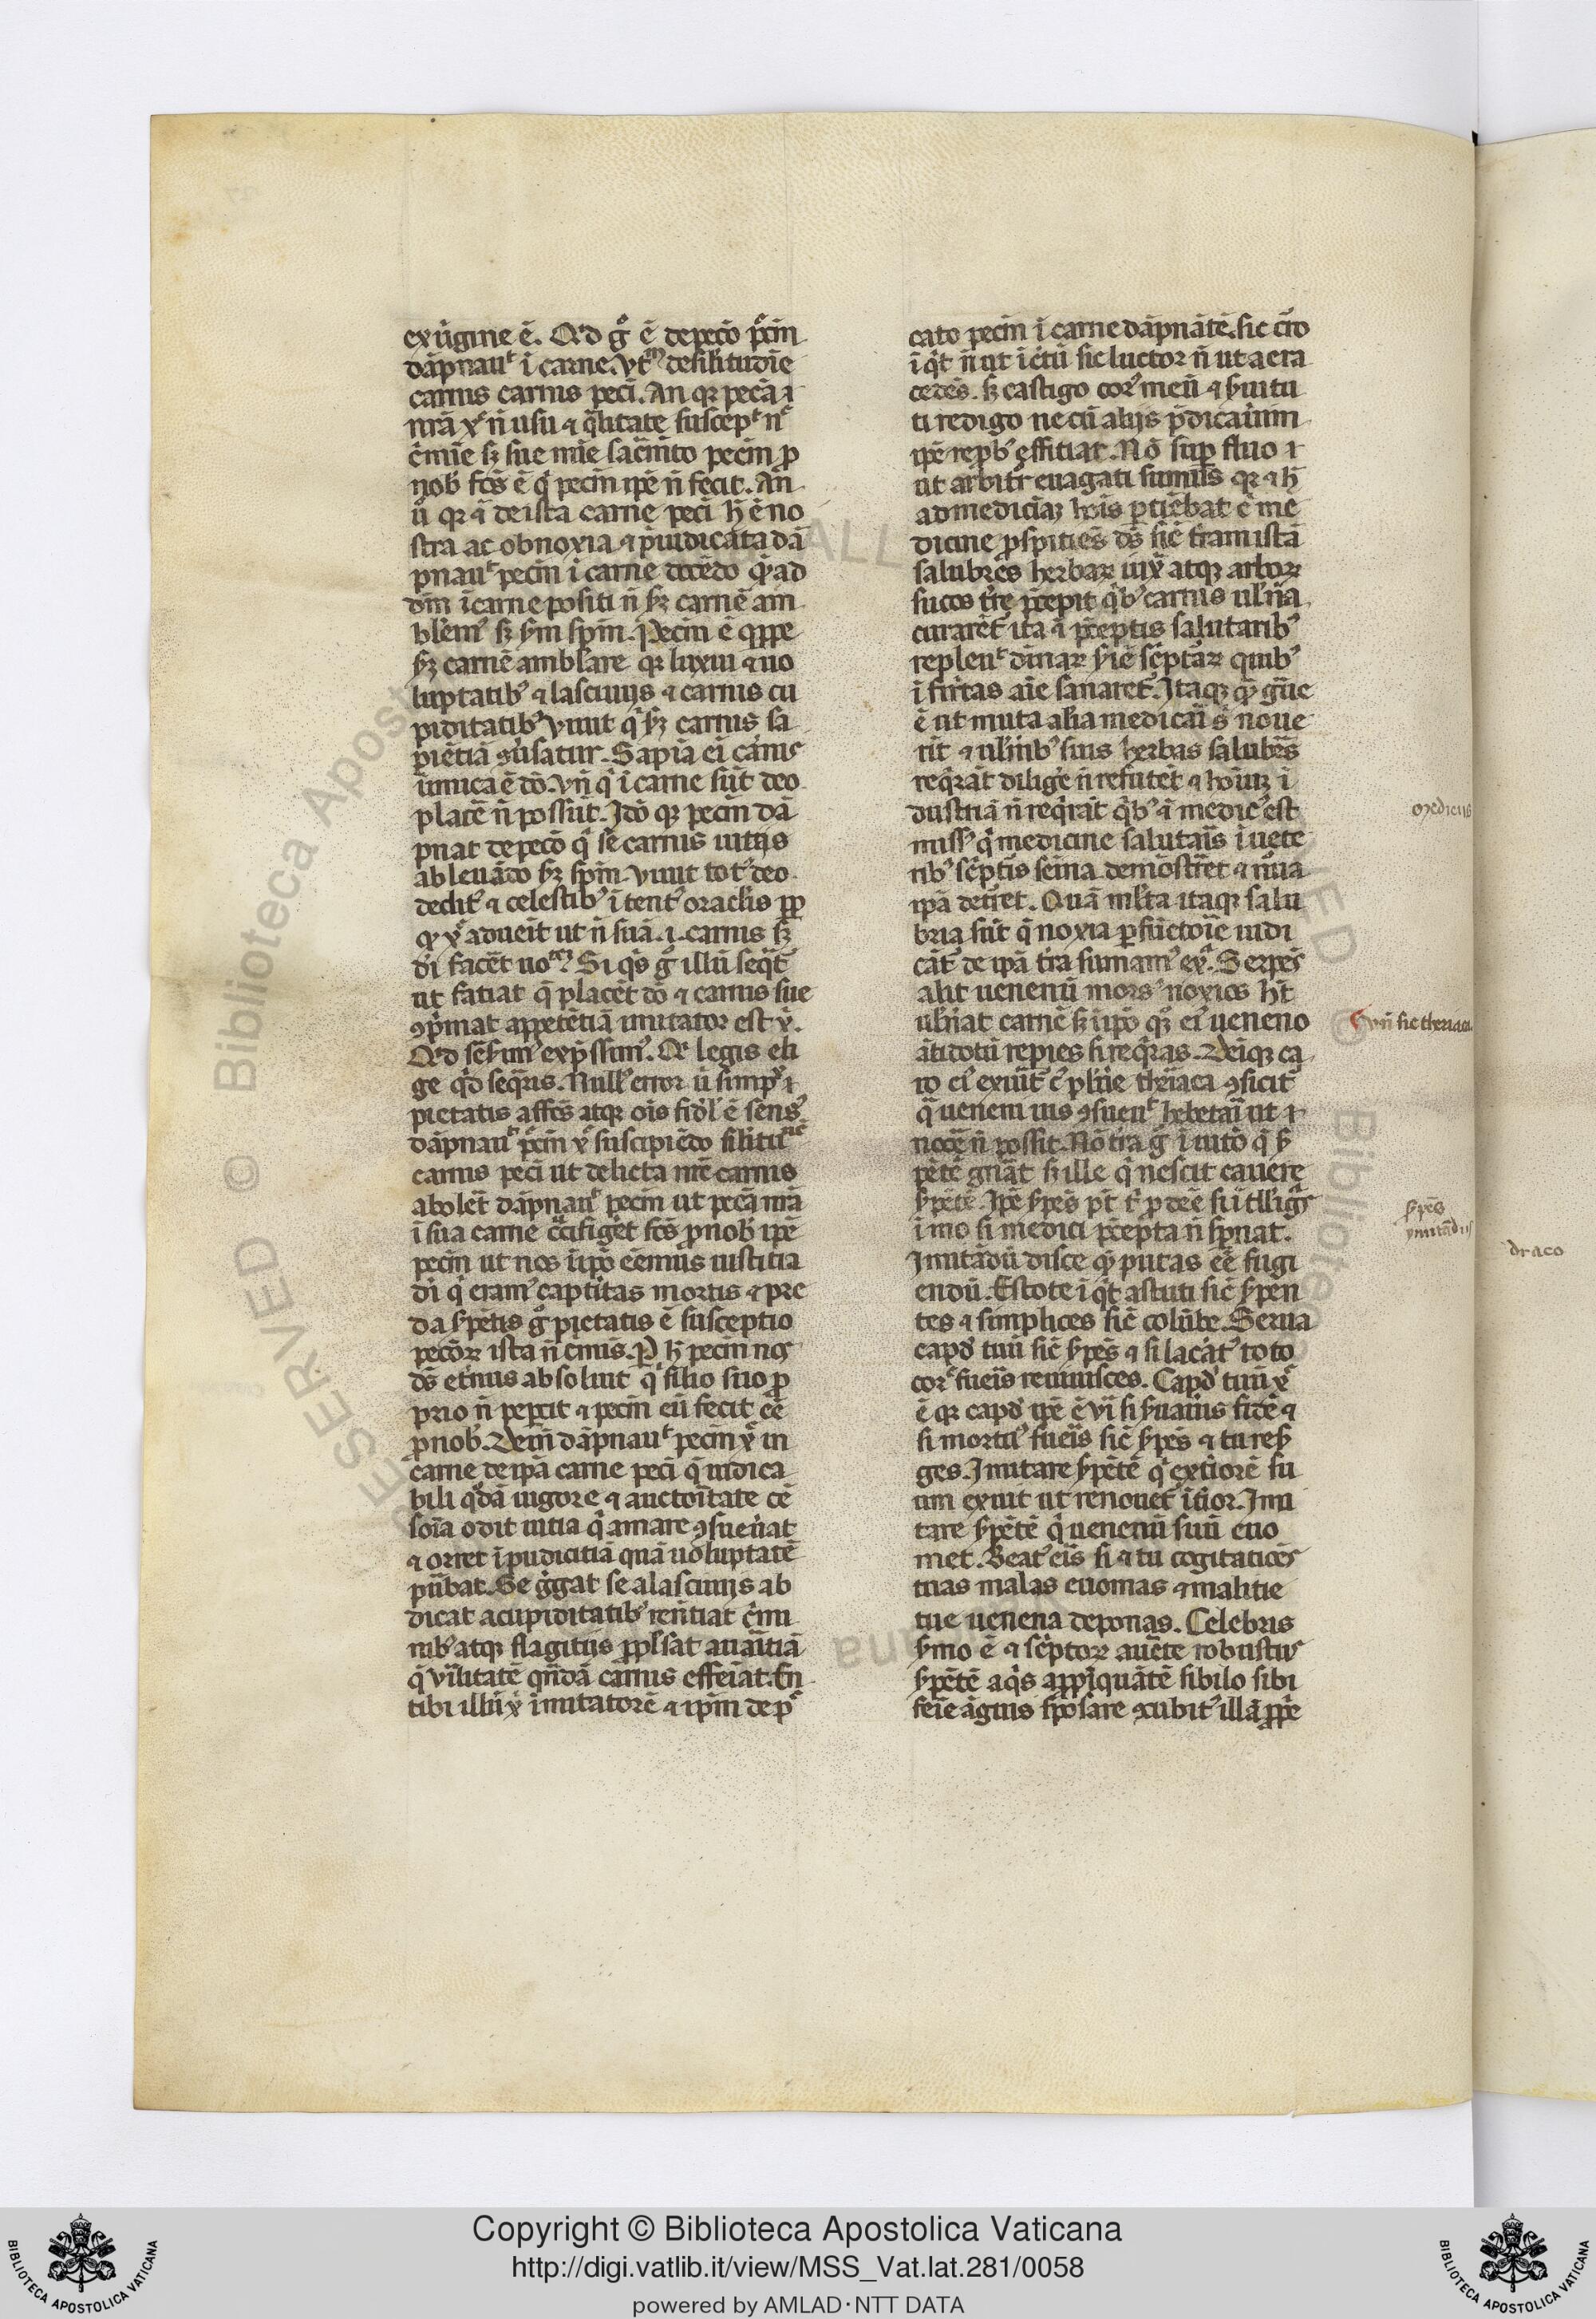 ex uͥgine ē. Qd gͦ ē de pecō pͨcīn
dāpnauͭ ī carne. vtͫ de silitudīe
carnis carnis pecī. An qꝛ pecā ī
nrā xͨ n̄ usu ⁊ qͣlitate suscepͭ nͨ
sꝫ sue mīe sacͣmto pecīn ꝓ
nob̾ fcs̄ ē qͥ pecīn ip̄e n̄ fecit. An
ū qꝛ ā de ista carne pecī h̄ ē no
stra ac obnoxia ⁊ p̄iudicata dā
pnauͭ pecīn ī carne docēdo ꝙ ad
dīn ī carne positi n̄ sꝫ carnē am
blem̾ sꝫ sꝫm spīn. Pecīn ē ꝓpe
sꝫ carnē amblare qꝛ luxui ⁊ uo
luptatib̾ ⁊ lasciuijs ⁊ carnis cu
piditatib̾ viuit qͥ sꝫ carnis sa
piētiā ꝯusatur. Sapīa ei̅ carnis
inimica ē dō. vn̄ qͥ ī carne sūt deo
placē n̄ possūt. Idō qꝫ pecīn dā
pnat de pecō qͥ se carnis uitijs
ableuādo sꝫ spīn. viuit tot̾ deo
dedit̾ ⁊ celestib̾ ītent̾ oraclis ꝓp
ꝙ xͨ aduēit ut n̄ suā .i. carnis sꝫ
dī facēt uoͭᵉᵐ Si qͥs gͦ illū seqͥt̾
ut fatiat qͥ placēt dō ⁊ carnis sue
ꝯpͥmat appetētiā imitator est xͥ.
Qd sēsim̾ exp̄ssim̾. Qͥ legis eli
ge qͥd seqͣris. Null̾ error ū simpͣ ⁊
pietatis affcs̄ atqꝫ oīs fidel̾ ē sens̾
dāpnauͭ pͨcīn xͨ suscipiēdo silituͩⁱᵉ
carnis pecī ut delicta nrē carnis
abolet̄ dāpnauͭ pecīn ut pecā nrā
ī sua carne cͨcifiget fcs̄ ꝓ nob̾ ip̄e
pecīn ut nos ī ip̄o eēmus iustitia
dī qͥ eram̾ captiͥtas mortis ⁊ pre
da spētis gͦ pietatis ē susceptio
pecōꝝ ista n̄ cͥmīs. P h̄ pecīn nos
ds̄ et̾nus absoluit qͥ filio suo ꝓ
prio n̄ pepcit ⁊ pecīn eū fecit eē
ꝓ nob̾. Deīn dāpnauͭ pecīn xͨ in
carne de ip̄a carne pecī qͥ iudica
bili qͣdā uigore ⁊ auctoritate cē
soīa odit uitia qͥ amare ꝯsueuͣat
⁊ orret īpudicitiā quā uoluptatē
putabat. Se gͥgat se a lasciuijs ab
dicat a cupiditatib̾ renūtiat cͥmi
nib̾ atqꝫ flagitijs ꝓplsat auaͥtiā
qͥ viͥlitatē qndā carnis effeīat. En
tibi illū xͥ imitatorē ⁊ ip̄m de pͨ
cato pecīn ī carne dāpnātē. sic cͣro
īqͥt n̄ ut ī cͨtū sic luctor n̄ ut aera
cedēs. sꝫ castigo cor̾ meū ⁊ suitu
ti redigo ne cū alijs p̄dicaūim
ip̄e repb̾ efficiar. Nō supfluo ⁊
ut arbitͦr euagati sumus qꝛ ⁊ h̄
ad mediciā hoīs ꝑtīebat ē me
dicine ꝓspitiēs ds̄ sic t̄ram istā
salubres herbaꝝ uirͣ atqꝫ arboꝝ
sucos tͬre p̄cepit qͥb̾ carnis ulnͣa
curarēt̾ ita ī p̄ceptis salutarib̾
repleuͭ dīnaꝝ siē scͥptaꝝ quib̾
īfirͥtas aīe sanaret̾. Itaqꝫ qͣ gͣue
ē ut muta alia medicaī sͥ noue
rīt ⁊ ulnͥib̾ suis herbas salubres
reqͥrāt dilige n̄ refutet ⁊ hoīuꝫ ī
dustriā n̄ reqͥrāt qͥb̾ ā medic̾ est
miss̾ qͥ medicine salutaris ī uete
rib̾ scͥptis seīna demōstret ⁊ nūa
ip̄a det̾iet. Quā mlta itaqꝫ salu
bria sūt qͥ noxia ꝑ fūctoīe iudi
cāt̾ de ip̄a tͬra sumam̾ exͣ. Serpēs
alit uenenū mors̾ noxios h̄t
ulnͣat carnē sꝫ ī ip̄o qͦꝫ ei̾ ueneno
ātidotū repies si reqͥras. Deīqꝫ ca
ro ei̾ exuit̾ ē plīre theriaca ꝯficit̾
qͣ ueneni uis ꝯsueuͭ hebetari ut ⁊
nocē n̄ possit. Nō tͬra gͦ ī uitō qͥ s̾
pētē gnāt sꝫ ille qͥ nescit cauere
spētē. Ip̄e spēs pͭ tͥ ꝓdeē si ītlligͣs
īmo si medici p̄cepta n̄ spnat̾.
Imitādū disce qͥ putas eē fugi
endū. Estote īqͥt astuti sic spen
tes ⁊ simplices sic colūbe. Serua
capd̾ tuū sic spēs ⁊ si lacͣat̾ toto
cor̾ fueris reuiuisces. Capd̾ tuū xͨ
ē qꝛ capd̾ ip̄e ē viͥ si suaūis fidē ⁊
si mortu̾ fueris sic spēs ⁊ tu resͬ
ges. Imitare spētē qͥ extͥorē su
um exuit ut renouet̾ ītͥior. Imi
tare spētē qͥ uenenū suū euo
met. Beat̾ eris si ⁊ tu cogitatiōes
tuas malas euomas ⁊ malitie
tue uenena deponas. Celebris
smo ē ⁊ scͥptoꝝ aucͭte robustus
spētē aqͥs appͦpīquātē sibilo sibi
feīe āguis sposare ꝯcubit̾ illā ꝓpe
medicus
vn̄ fic theriaca.
spēs
ymitād̾us
draco
Copyright © Biblioteca Apostolica Vaticana
http://digi.vatlib.it/view/MSS_Vat.lat.281/0058
powered by AMLAD·NTT DATA
BIBLIOTECA APOSTOLICA VATICANA
BIBLIOTECA APOSTOLICA VATICANA